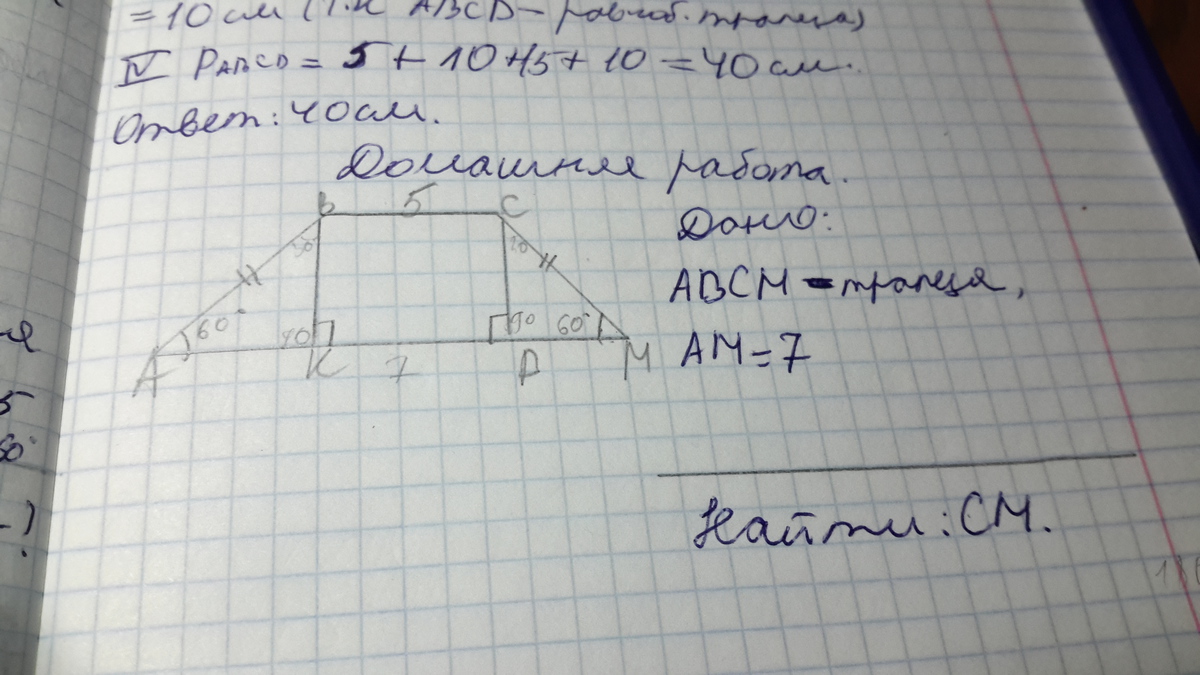 = 10 см (т.к ABCD - равноб. трапеция)
IV PABCD = 5 + 10 + 15 + 10 = 40 см.
Ответ: 40 см.
Домашняя работа.
B 5 C
Дано:
30° 10
ABCM - трапеция,
60° 90 90 60°
AM = 7
A K 7 D M
5
60°
Найти: CM.
-?